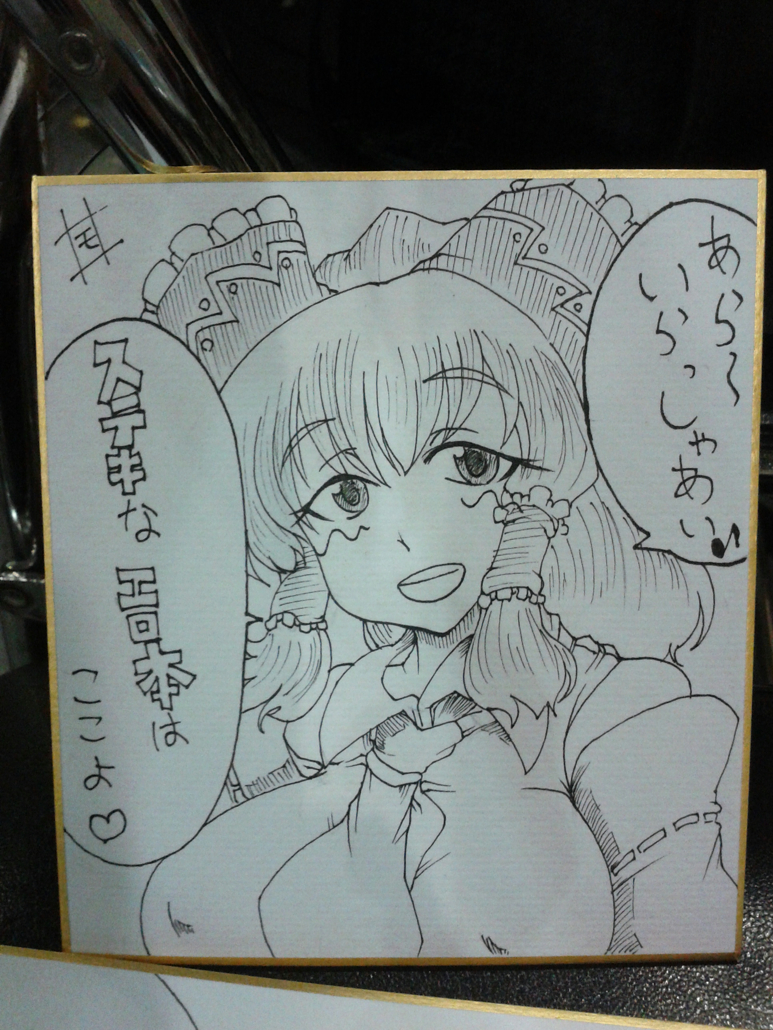 あら～
いらっしゃあい♪
ステキな エロ本は
ここよ♡